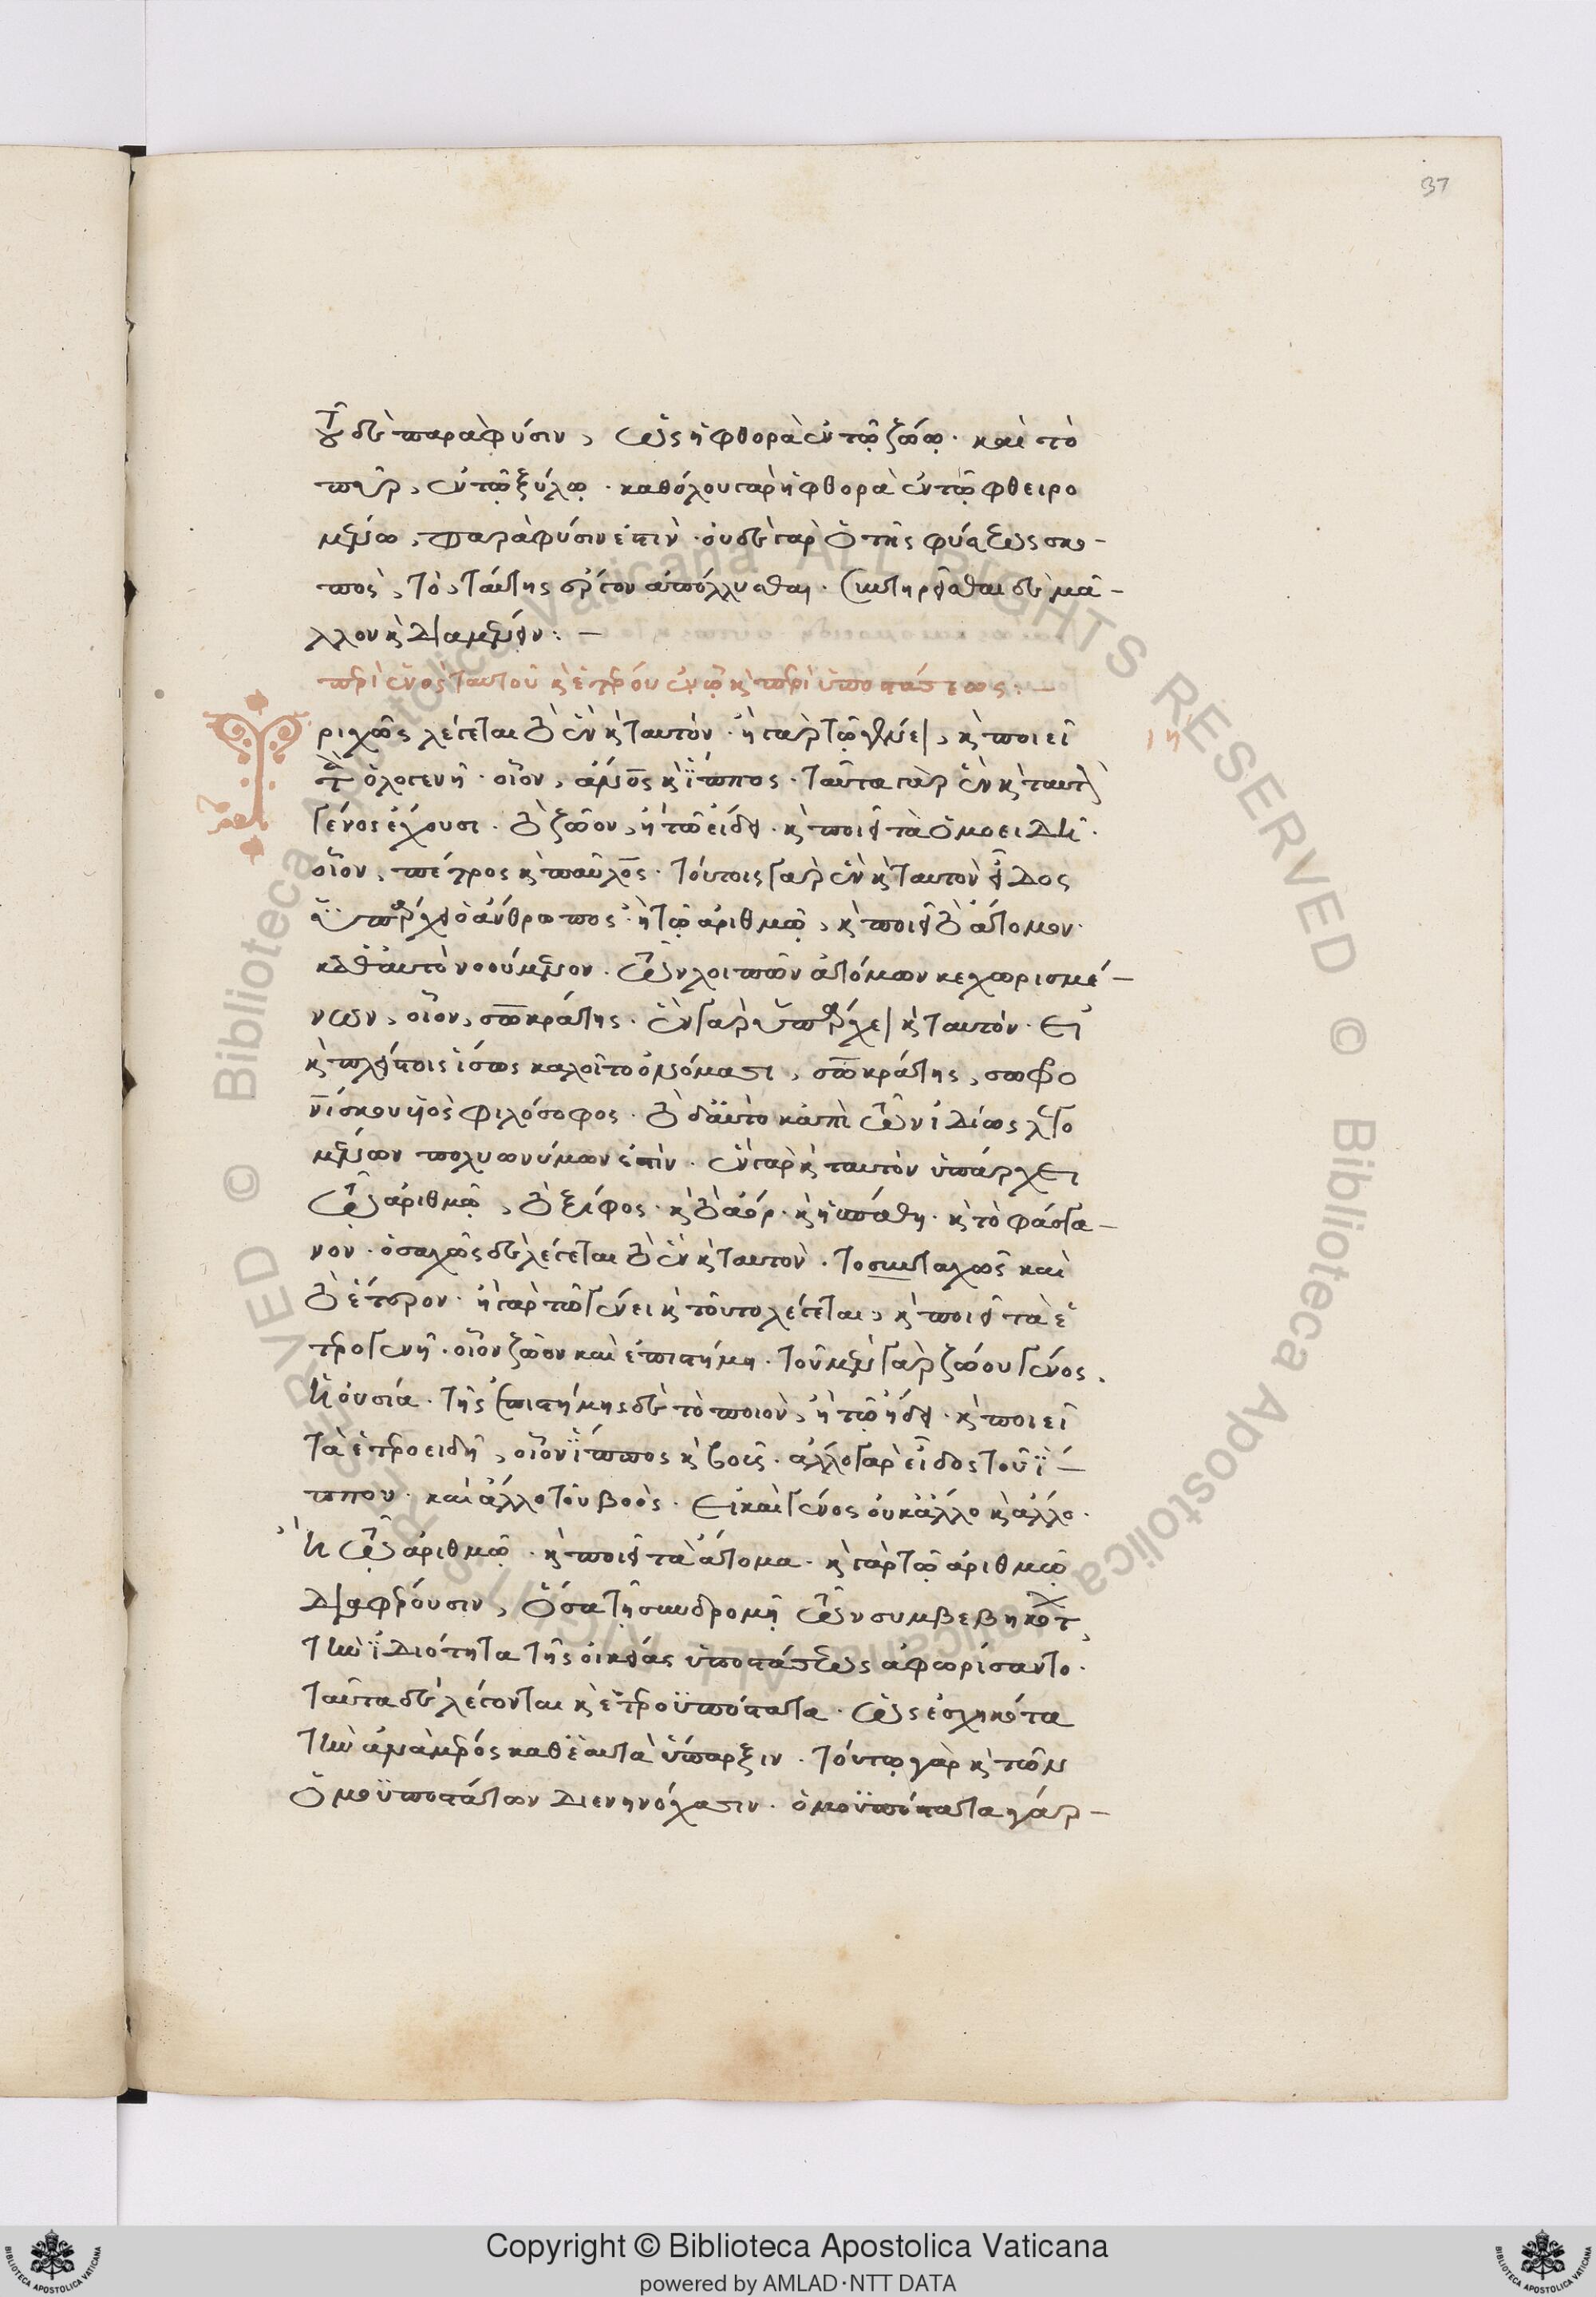 37
τοῦ δὲ παρὰ φύσιν, ὡς ἡ φθορὰ ἐν τῷ ζώῳ. καὶ τὸ
πῦρ, ἐν τῷ ξύλῳ. καθόλου γὰρ ἡ φθορὰ ἐν τῷ φθειρο
μένῳ, παρὰ φύσιν ἐστίν. οὐδὲ γὰρ ὁ τῆς φύσεως σκο-
πὸς, τὸ ταύτης ἔργον ἀπόλλυσθαι. συντηρεῖσθαι δὲ μᾶ-
λλον κ διαμένειν: –
περὶ ἑνὸς ταυτοῦ κ ἑτέρου ἐν ᾧ κ περὶ ὑποστάσεως: –
ριχῶς λέγεται τὸ ἓν κ ταυτόν. ἢ γὰρ τῷ γένει, κ ποιεῖ
ιη
τὰ ὁλογενῆ. οἷον, ἄνος κ ἵππος. ταῦτα γὰρ ἓν κ ταυτὸ
γένος ἔχουσι. τὸ ζῶον, ἢ τῶ εἴδει. κ ποιεῖ τὰ ὁμοειδῆ.
οἷον, πέτρος κ παῦλος. τούτοις γὰρ ἓν κ ταυτὸν εἶδος
ὑπάρχει ὁ ἄνθρωπος. ἢ τῷ ἀριθμῷ, κ ποιεῖ τὸ ἄτομον.
καθ' αυτὸ νοούμενον. τῶν λοιπῶν ἀτόμων κεχωρισμέ-
νων, οἷον, σωκράτης. ἓν γὰρ ὑπάρχει κ ταυτόν. εἰ
κ πλείστοις ἴσως καλοῖτο ὀνόμασι, σωκράτης, σωφρο
νίσκου υἱὸς φιλόσοφος. τὸ δ' αὐτὸ κἀπὶ τῶν ἰδίως λεγο
μένων πολυωνύμων ἐστίν. ἓν γὰρ κ ταυτὸν ὑπάρχει
τῷ ἀριθμῷ, τὸ ξίφος. κ τὸ ἄορ. κ ἡ σπάθη. κ τὸ φάσγα-
νον. ὁσαχῶς δὲ λέγεται τὸ ἓν κ ταυτὸν. τοσαυταχῶς καὶ
τὸ ἕτερον. ἢ γὰρ τῶ γένει κ τοῦτο λέγεται, κ ποιεῖ τὰ ἑ
τερογενῆ. οἷον ζῶον καὶ ἐπιστήμη. τοῦ μὲν γὰρ ζώου γένος,
ἡ οὐσία. τῆς ἐπιστήμης δὲ τὸ ποιὸν, ἢ τῷ ἤδει. κ ποιεῖ
τὰ ἑτεροειδῆ, οἷον ἵππος κ βοῦς. ἄλλο γὰρ εἶδος τοῦ ἵ–
ππου. καὶ ἄλλο τοῦ βοὸς. εἰ καὶ γένος οὐκ ἄλλο κ ἄλλο.
ἢ τῷ ἀριθμῷ. κ ποιεῖ τὰ ἄτομα. κ γὰρ τῷ ἀριθμῷ
διαφέρουσιν, ὅσα τῇ συνδρομῇ τῶν συμβεβηκότων,
τὴν ἰδιότητα τῆς οἰκείας ὑποστάσεως ἀφωρίσαντο.
ταῦτα δὲ λέγονται κ ἑτεροϋπόστατα. ὡς ἐσχηκότα
τὴν ἀνὰ μέρος καθ' ἑαυτὰ ὕπαρξιν. τούτῳ γὰρ κ τῶν
ὁμοϋποστάτων διενηνόχασιν. ὁμοϋπόστατα γὰρ–
Copyright © Biblioteca Apostolica Vaticana
powered by AMLAD·NTT DATA